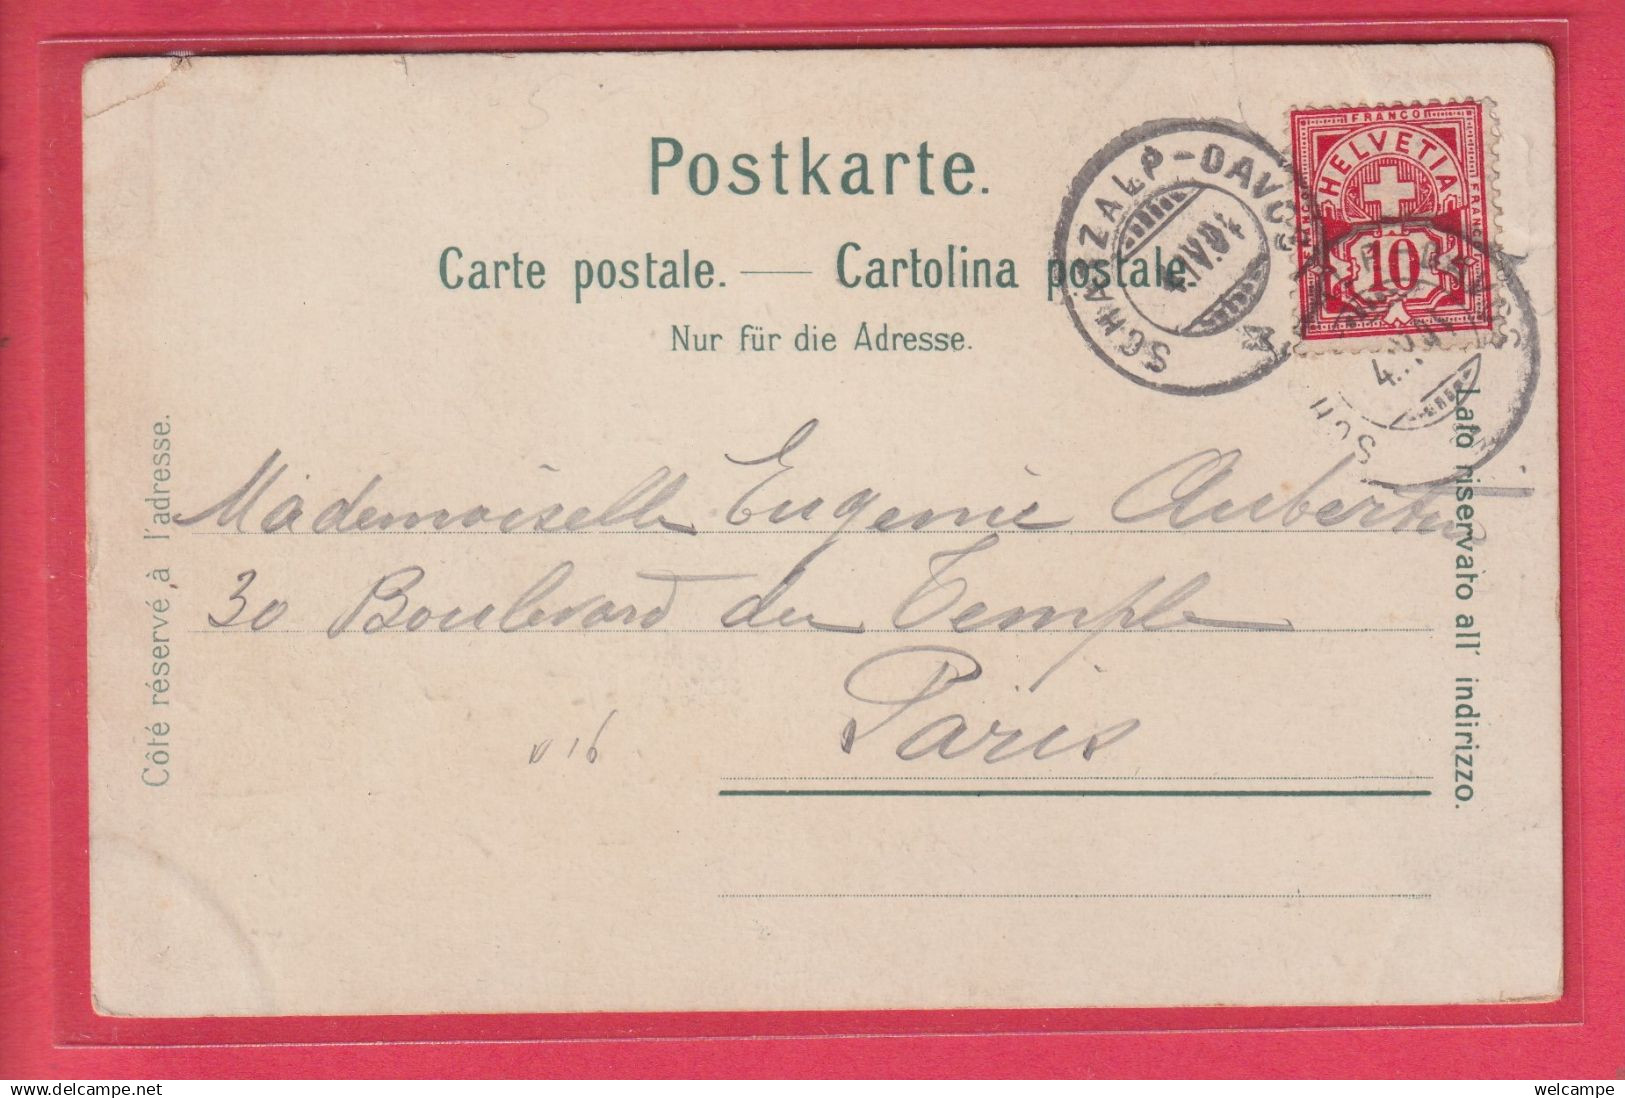 Postkarte.
Carte postale. — Cartolina postale.
Nur für die Adresse.
SCHATZALP-DAVOS
4.V.04
FRANCO
HELVETIA
FRANCO
FRANCO
10
4.V.04
Côté réservé à l'adresse.
Lato riservato all' indirizzo.
Mademoiselle Eugenie
30 Boulevard du Temple
Paris
16
welcampe